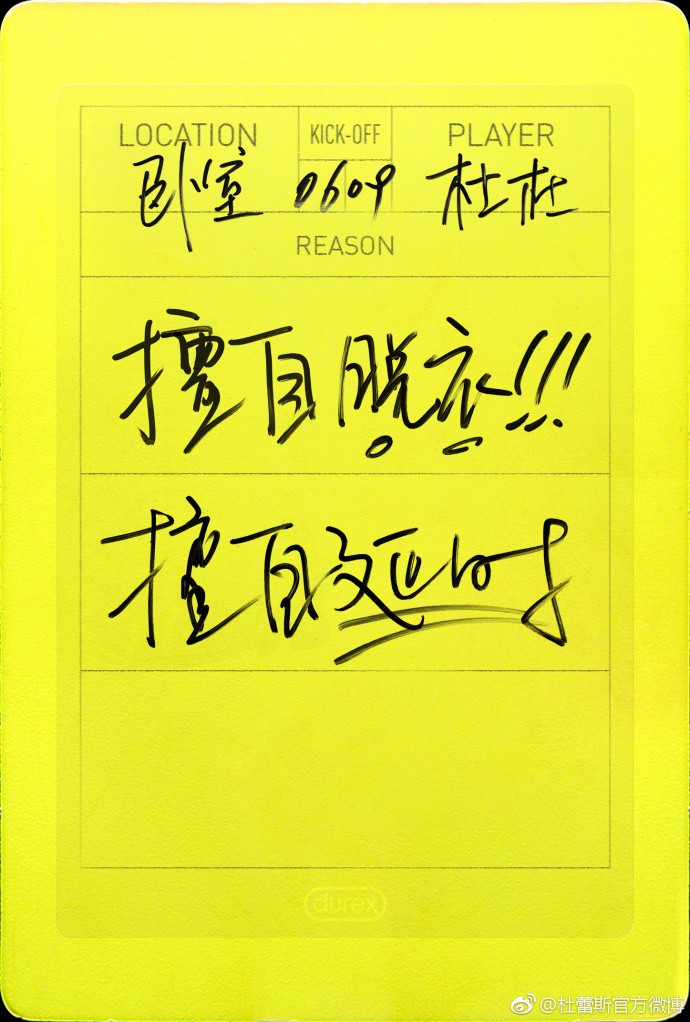 LOCATION KICK-OFF PLAYER
卧室 0609 杜杜
REASON
擅自脱衣!!!
擅自延时
durex
@杜蕾斯官方微博